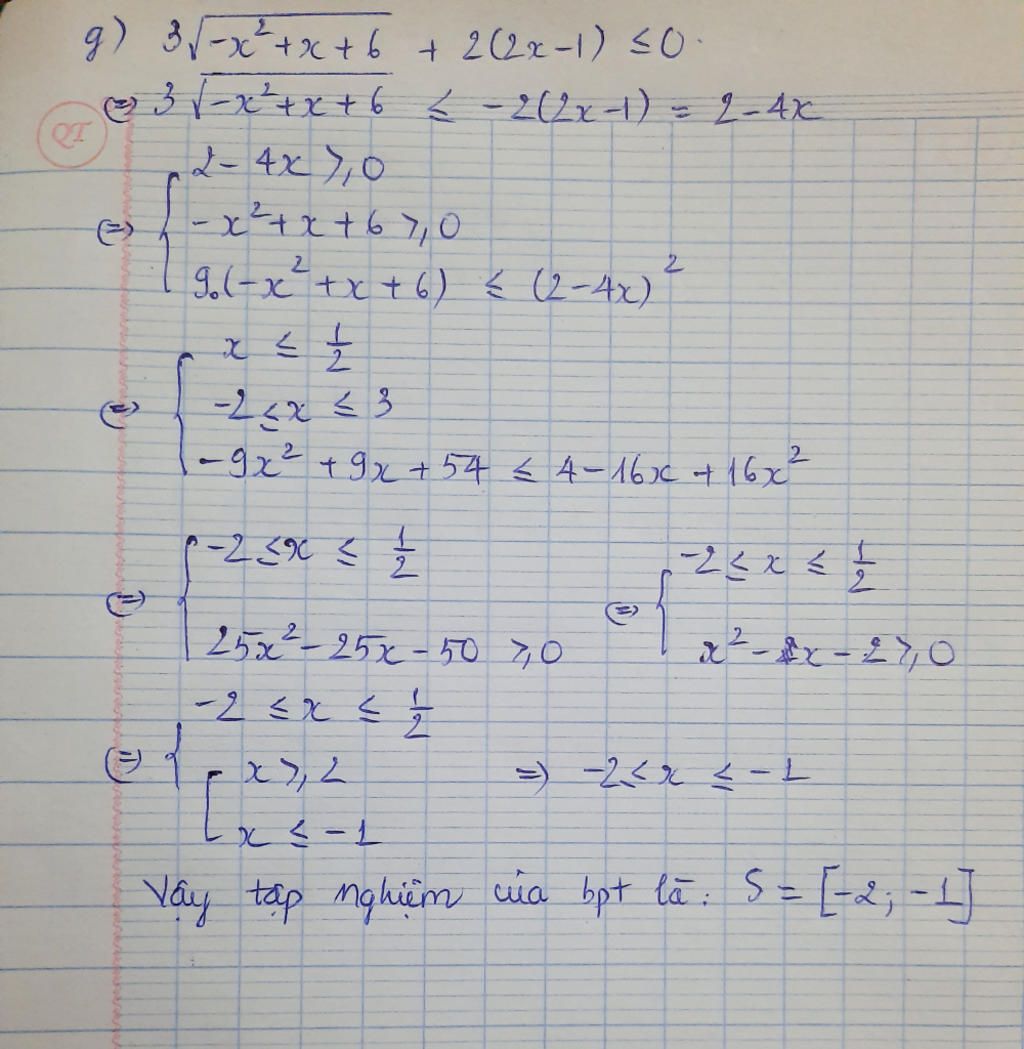 g) 3√(-x² + x + 6) + 2(2x-1) ≤ 0.
⇔ 3√(-x² + x + 6) ≤ -2(2x-1) = 2-4x
QT
2 - 4x ≥ 0
⇔ { -x² + x + 6 ≥ 0
9.(-x² + x + 6) ≤ (2-4x)²
x ≤ 1/2
⇔ { -2 ≤ x ≤ 3
-9x² + 9x + 54 ≤ 4 - 16x + 16x²
⇔ { -2 ≤ x ≤ 1/2
25x² - 25x - 50 ≥ 0
⇔ { -2 ≤ x ≤ 1/2
x² - x - 2 ≥ 0
-2 ≤ x ≤ 1/2
⇔ { [ x ≥ 2 ⇒ -2 ≤ x ≤ -1
x ≤ -1
Vậy tập nghiệm của bpt là: S = [-2; -1]